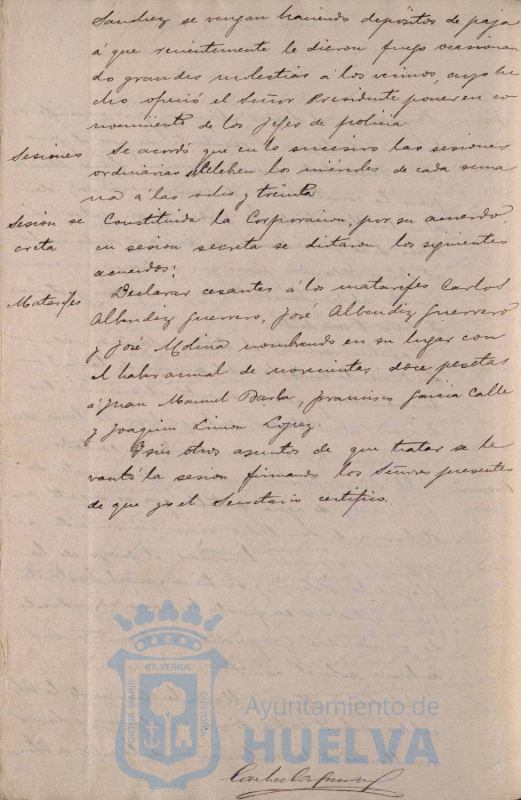 Sanchez se vengan haciendo depósitos de paja
á que recientemente le dieron fuego ocasionan
do grandes molestias á los vecinos, cuyo he
cho ofreció el Señor Presidente poner en co
nocimiento de los Jefes de policia.
Sesiones
Se acordó que en lo sucesivo las sesiones
ordinarias se celebren los miércoles de cada sema
na á las y treinta
Sesión se
creta
Constituida la Corporacion, por su acuerdo,
en sesion secreta se dictaron los siguientes
acuerdos:
Matarifes
Declarar cesantes á los matarifes Carlos
Albendiz Guerrero, José Albendiz Guerrero
y José Molina nombrando en su lugar con
el haber annal de novecientas doce pesetas
á Juan Manuel Barba, Francisco Garcia Calle
y Joaquin Limon Lopez.
Y sin otros asuntos de que tratar se le
vantó la sesion firmando los Señores presentes
de que yo el Secretario certifico.
ET TERRÆ
PORTUS MARIS
CUSTODIA
Ayuntamiento de
HUELVA